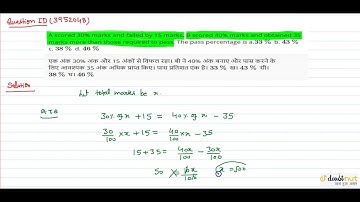 Question ID (3952048)
A scored 30% marks and failed by 15 marks. B scored 40% marks and obtained 35
marks more than those required to pass. The pass percentage is a.33 % b. 43 %
c. 38 % d. 46 %
एक अंक 30% अंक और 15 अंकों से विफल रहा। बी ने 40% अंक बनाए और पास करने के
लिए आवश्यक 35 अंक अधिक प्राप्त किए। पास प्रतिशत एक है। 33 % ख। 43 % सी।
38 % घ। 46 %
Solution
Let total marks be x.
ATQ
30% of x + 15 = 40% of x - 35
30/100 x x + 15 = 40/100 x x - 35
15 + 35 = 40x/100 - 30x/100
50 = 10x/100
x = 500
doubtnut